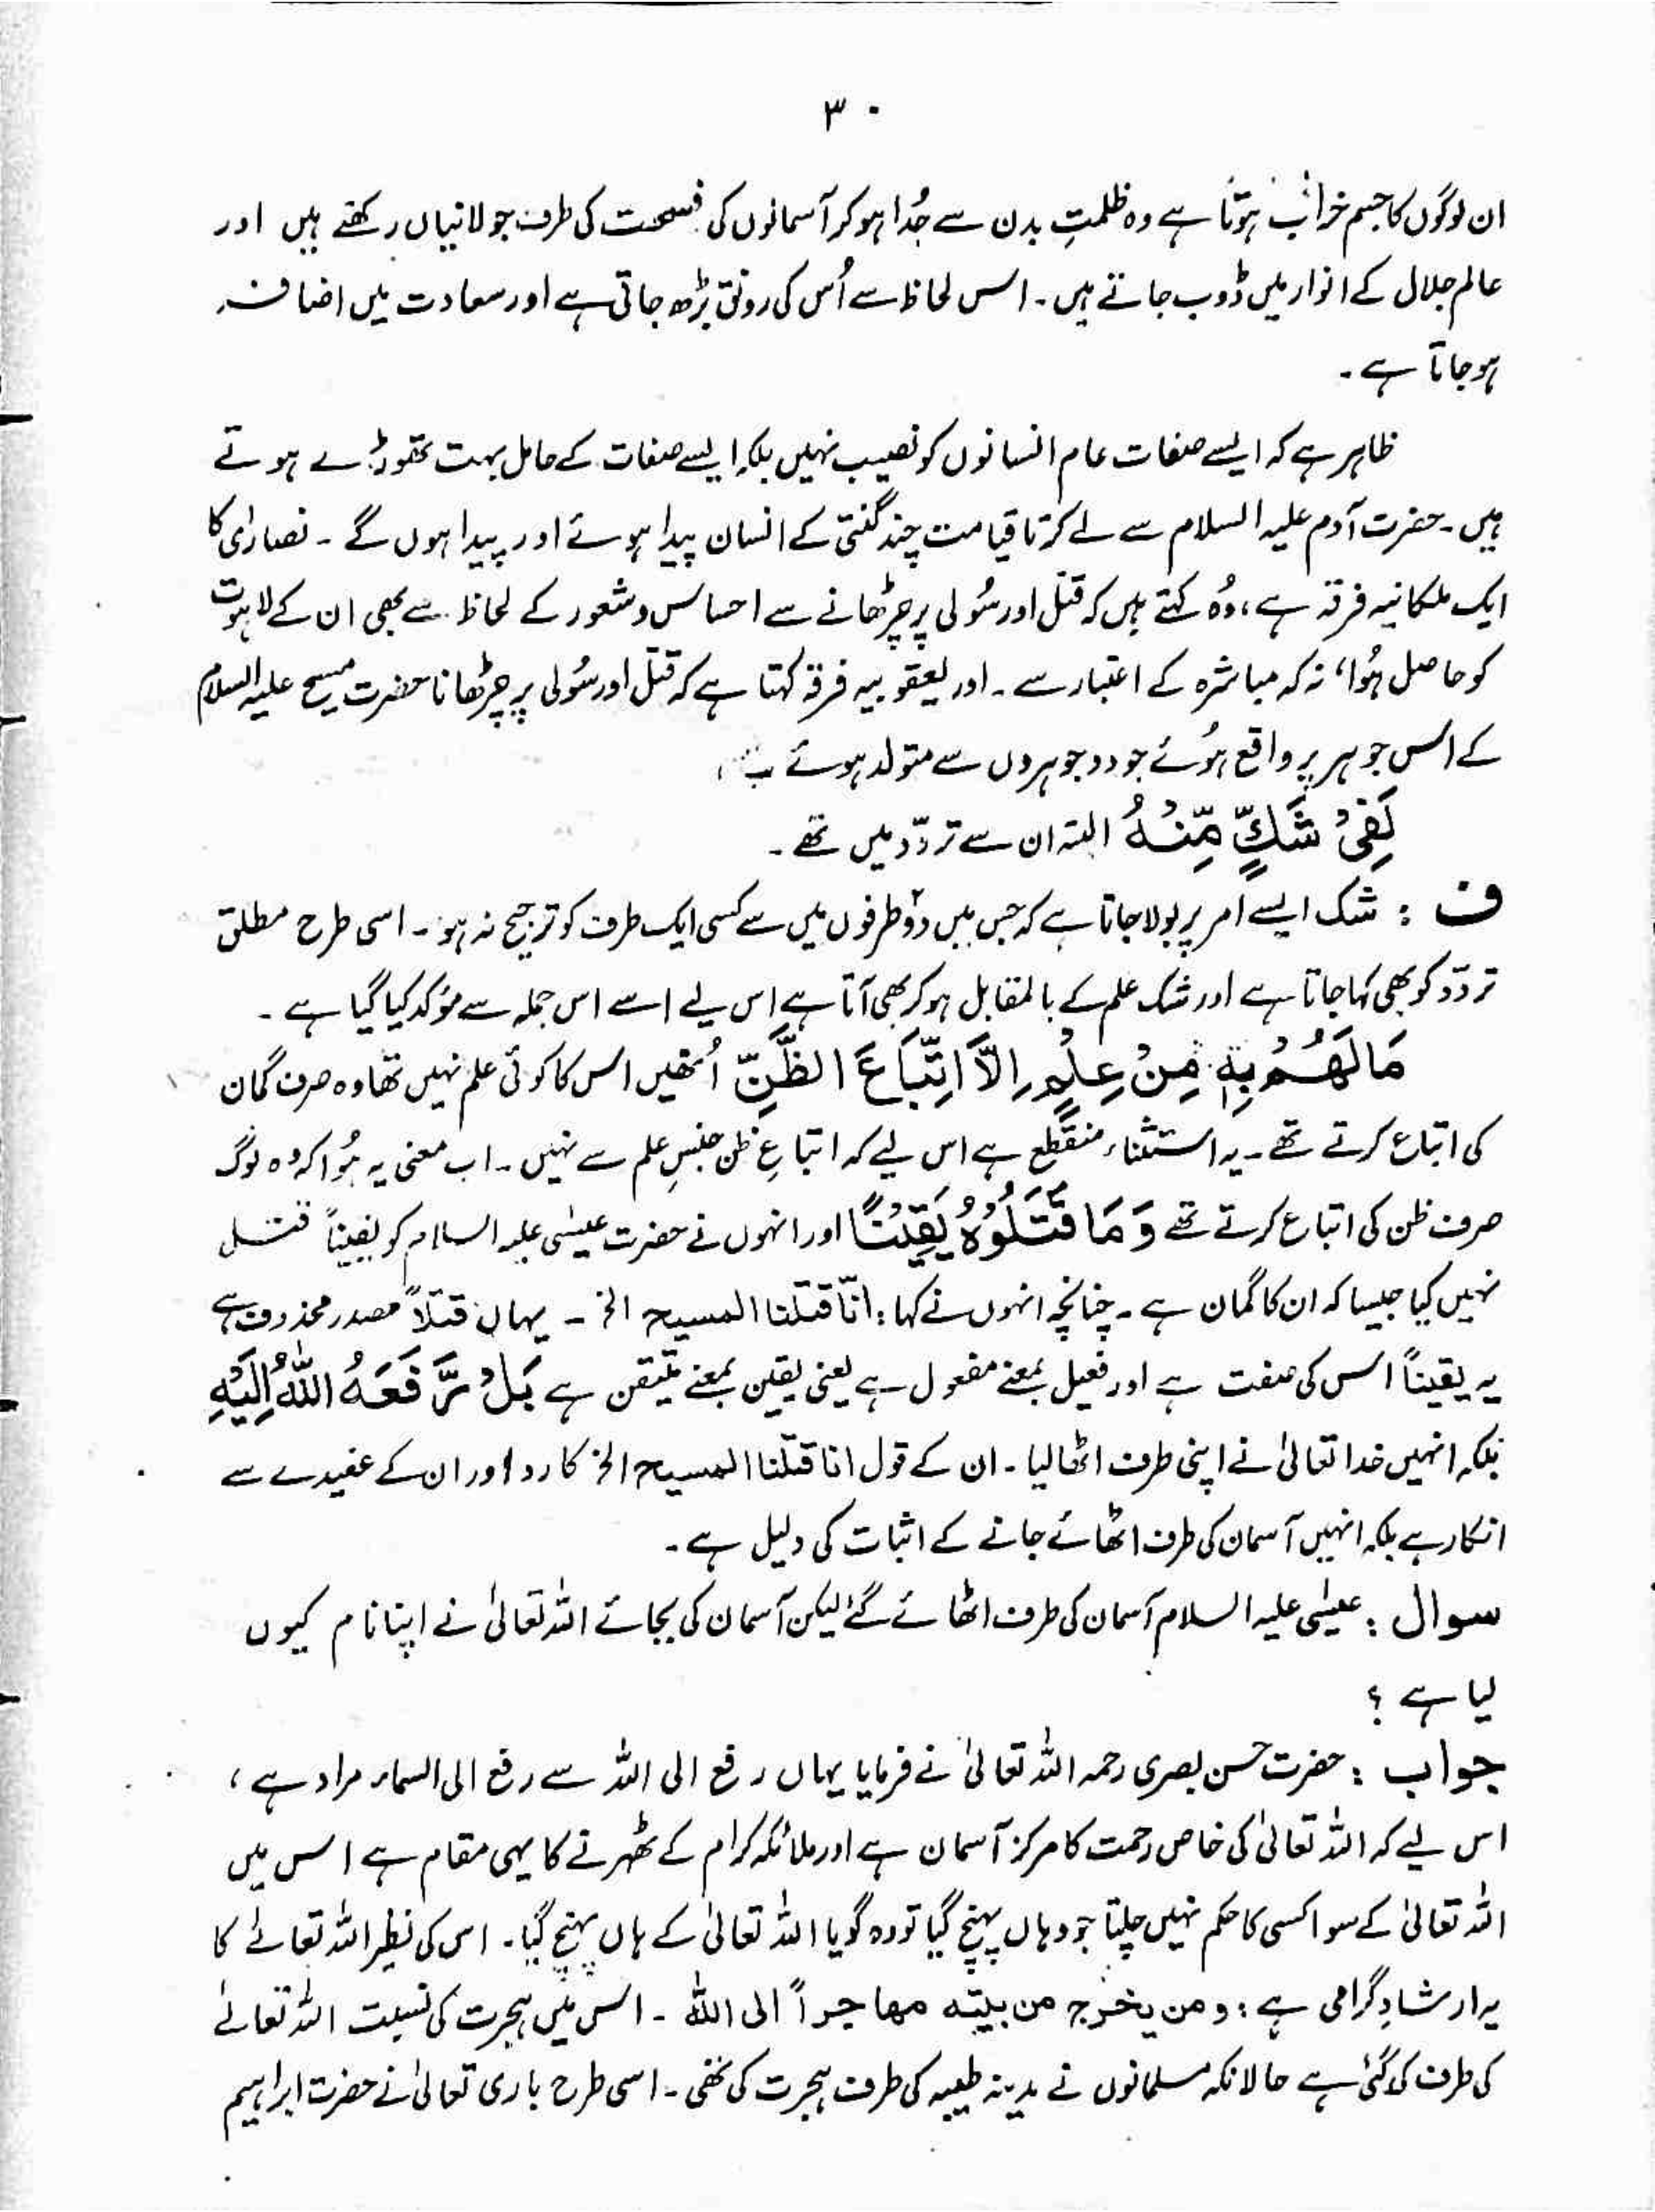 ۳۰
ان لوگوں کا جسم خراب ہوتا ہے وہ ظلمتِ بدن سے جُدا ہو کر آسمانوں کی فسحت کی طرف جولانیاں رکھتے ہیں اور
عالم جلال کے انوار میں ڈوب جاتے ہیں۔ اس لحاظ سے اُس کی رونق بڑھ جاتی ہے اور سعادت میں اضافہ
ہو جاتا ہے۔
ظاہر ہے کہ ایسے صفات عام انسانوں کو نصیب نہیں بلکہ ایسے صفات کے حامل بہت تھوڑے ہوتے
ہیں۔ حضرت آدم علیہ السلام سے لے کر تا قیامت چند گنتی کے انسان پیدا ہوئے اور پیدا ہوں گے۔ نصاریٰ کا
ایک ملکانیہ فرقہ ہے، وُہ کہتے ہیں کہ قتل اور سُولی پر چڑھانے سے احساس و شعور کے لحاظ سے بھی ان کے لاہوت
کو حاصل ہُوا، نہ کہ مباشرہ کے اعتبار سے۔ اور یعقوبیہ فرقہ کہتا ہے کہ قتل اور سُولی پر چڑھانا حضرت مسیح علیہ السلام
کے اس جوہر پر واقع ہُوئے جو دو جوہروں سے متولد ہوئے
لَفِیْ شَكٍّ مِّنْهُ البتہ ان سے تردّد میں تھے۔
ف : شک ایسے امر پر بولا جاتا ہے کہ جس میں دو طرفوں میں سے کسی ایک طرف کو ترجیح نہ ہو۔ اسی طرح مطلق
تردّد کو بھی کہا جاتا ہے اور شک علم کے بالمقابل ہو کر بھی آتا ہے اس لیے اسے اس جملہ سے مؤکد کیا گیا ہے۔
مَا لَهُمْ بِهٖ مِنْ عِلْمٍ اِلَّا اتِّبَاعَ الظَّنِّ اُنھیں اس کا کوئی علم نہیں تھا وہ صرف گمان
کی اتباع کرتے تھے۔ یہ استثناء منقطع ہے اس لیے کہ اتباعِ ظن جنسِ علم سے نہیں۔ اب معنی یہ ہُوا کہ وہ لوگ
صرف ظن کی اتباع کرتے تھے وَ مَا قَتَلُوْهُ یَقِیْنًا اور انہوں نے حضرت عیسٰی علیہ السلام کو یقیناً قتل
نہیں کیا جیسا کہ ان کا گمان ہے۔ چنانچہ انہوں نے کہا : انّا قتلنا المسیح الخ ۔ یہاں قتلاً مصدر محذوف ہے
یہ یقیناً اس کی صفت ہے اور فعیل بمعنے مفعول ہے یعنی یقین بمعنے متیقن ہے بَلْ رَّفَعَهُ اللّٰهُ اِلَیْهِ
بلکہ انہیں خدا تعالیٰ نے اپنی طرف اٹھا لیا۔ ان کے قول انا قتلنا المسیح الخ کا رد اور ان کے عقیدے سے
انکار ہے بلکہ انہیں آسمان کی طرف اٹھائے جانے کے اثبات کی دلیل ہے۔
سوال : عیسٰی علیہ السلام آسمان کی طرف اٹھائے گئے لیکن آسمان کی بجائے اللہ تعالیٰ نے اپنا نام کیوں
لیا ہے ؟
جواب : حضرت حسن بصری رحمہ اللہ تعالیٰ نے فرمایا یہاں رفع الی اللہ سے رفع الی السماء مراد ہے،
اس لیے کہ اللہ تعالیٰ کی خاص رحمت کا مرکز آسمان ہے اور ملائکہ کرام کے ٹھہرنے کا یہی مقام ہے اس میں
اللہ تعالیٰ کے سوا کسی کا حکم نہیں چلتا جو وہاں پہنچ گیا تو وہ گویا اللہ تعالیٰ کے ہاں پہنچ گیا۔ اس کی نظیر اللہ تعالےٰ کا
یہ ارشادِ گرامی ہے : ومن یخرج من بیته مهاجراً الی اللّٰه ۔ اس میں ہجرت کی نسبت اللہ تعالےٰ
کی طرف کی گئی ہے حالانکہ مسلمانوں نے مدینہ طیبہ کی طرف ہجرت کی تھی۔ اسی طرح باری تعالیٰ نے حضرت ابراہیم